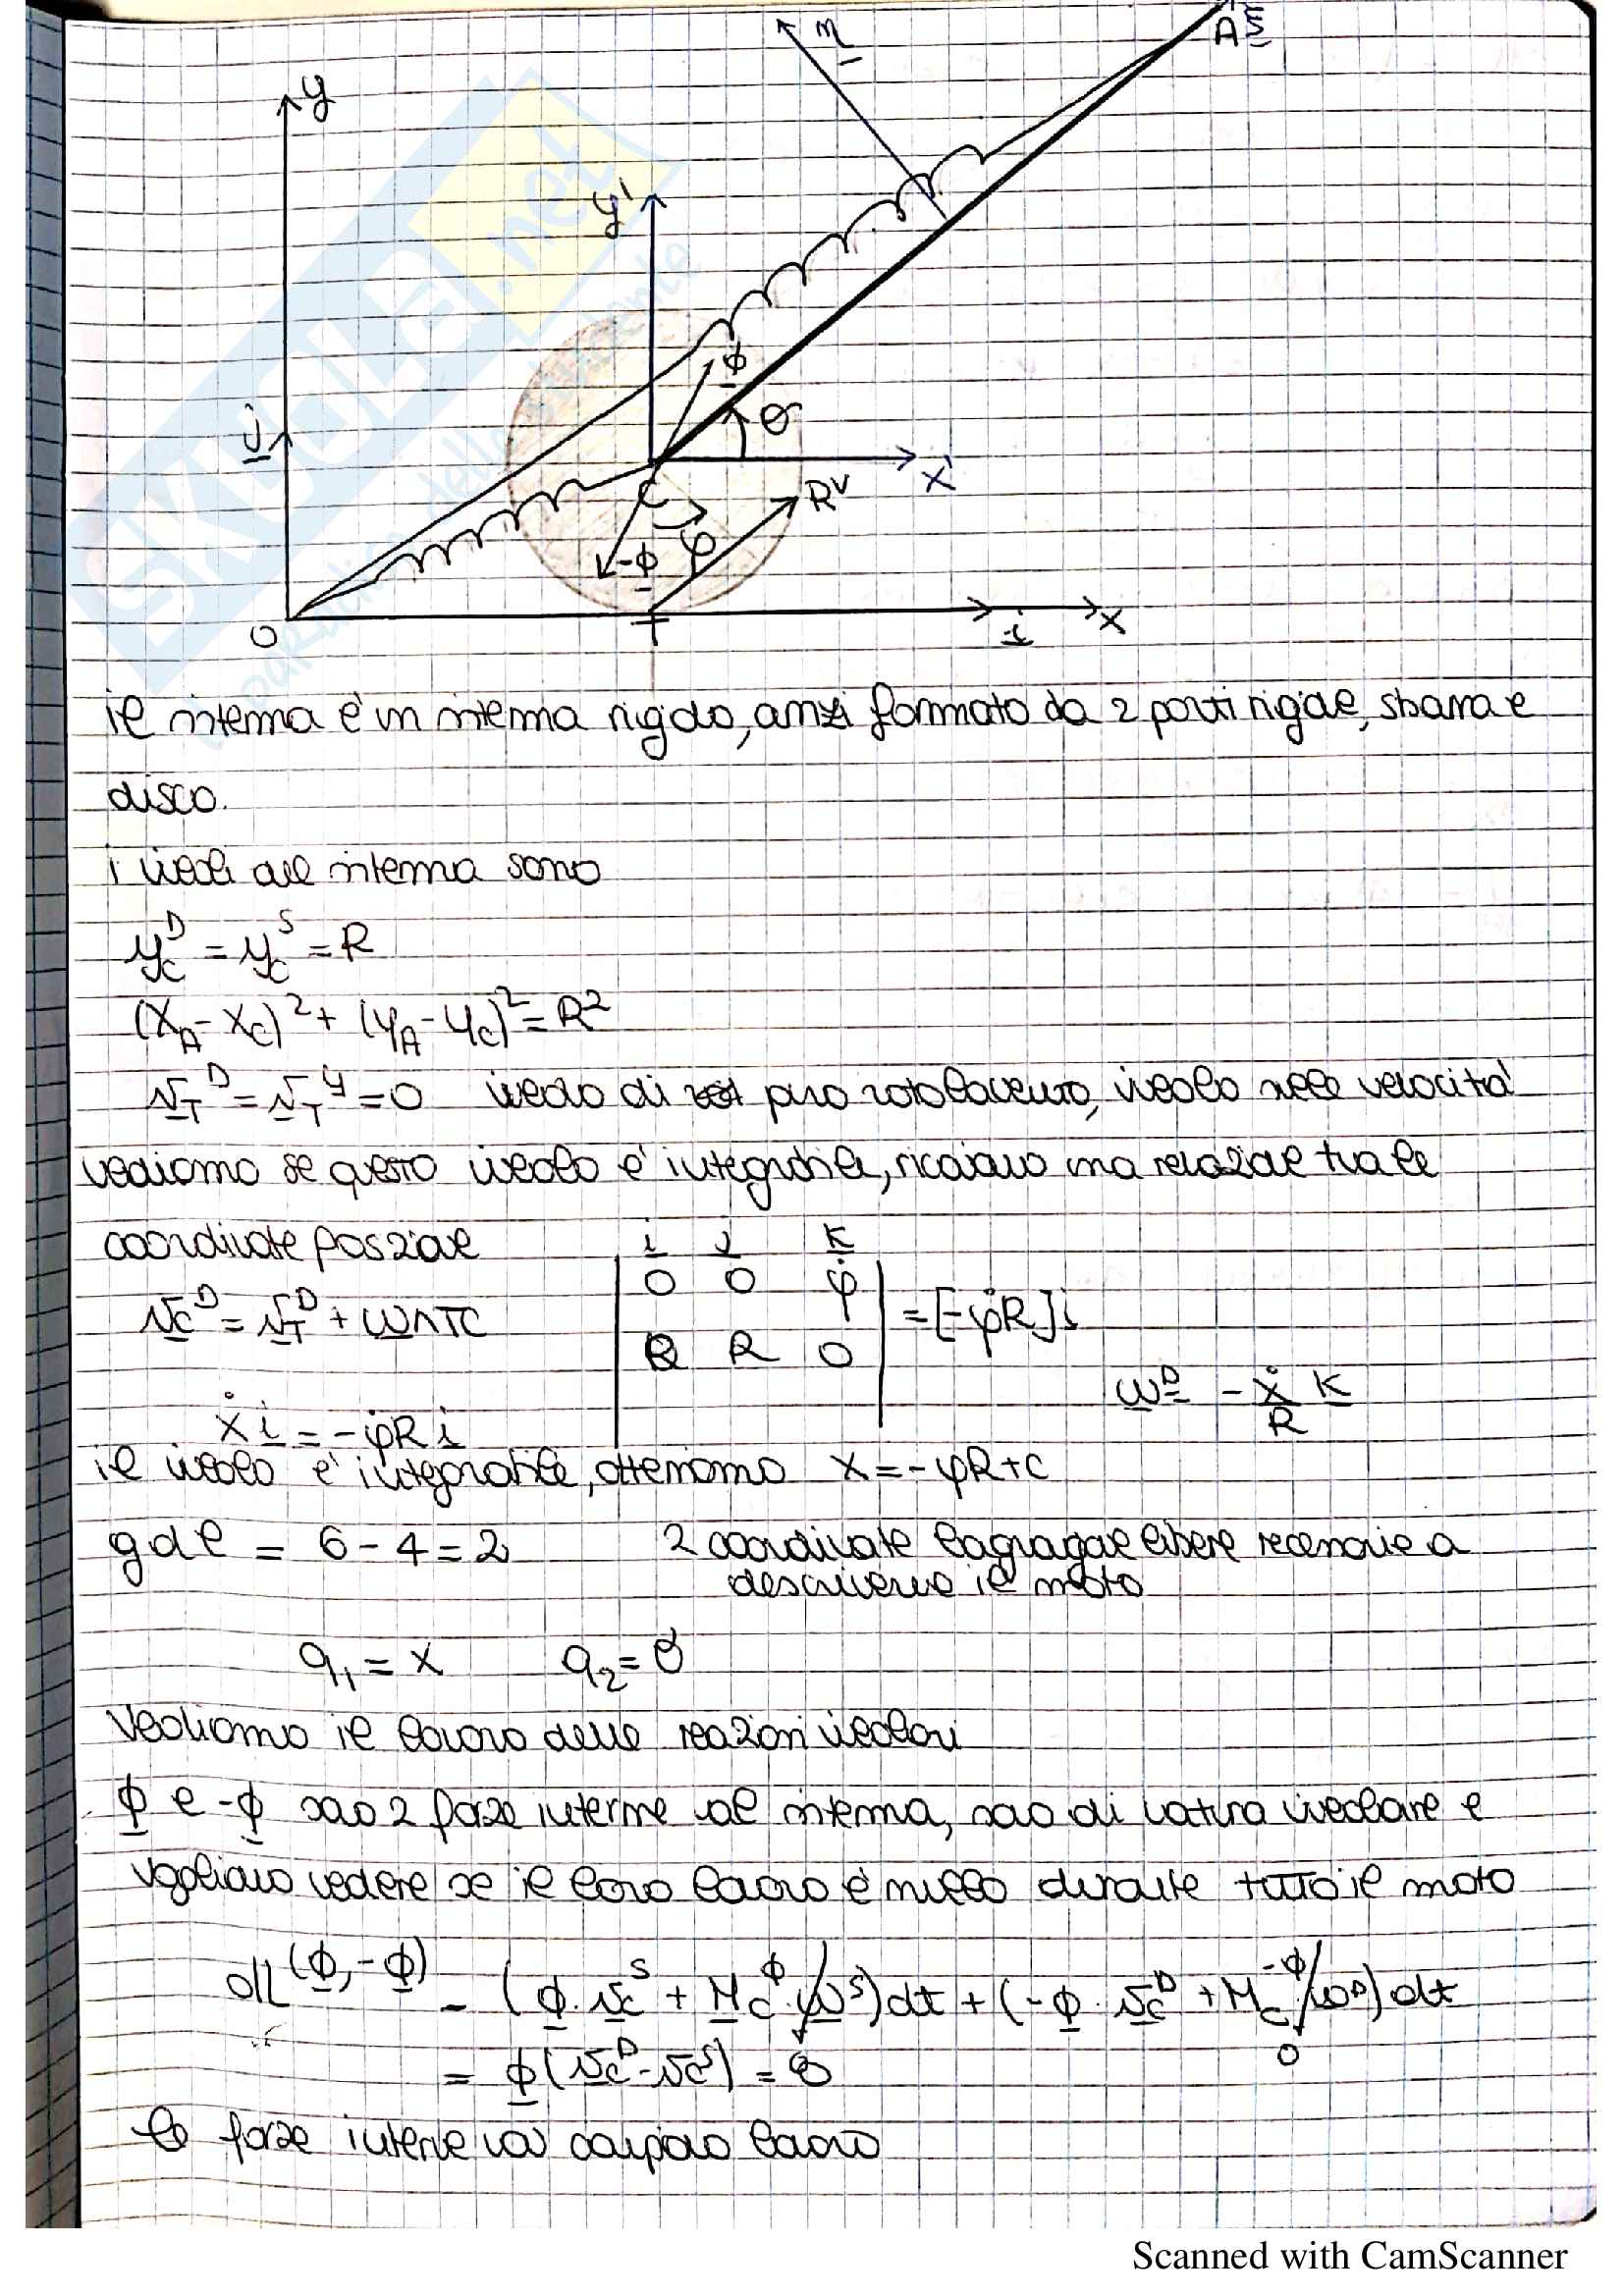 y
η
A ξ
y'
j
Φ
θ
x'
C
R^v
-Φ
φ
O
T
i
x
il sistema è un sistema rigido, anzi formato da 2 parti rigide, sbarra e
disco.
i vincoli del sistema sono
y_C^D = y_C^S = R
(x_A - x_C)^2 + (y_A - y_C)^2 = R^2
v_T^D = v_T^y = 0 vincolo di puro rotolamento, vincolo nelle velocità
vediamo se questo vincolo è integrabile, ricaviamo una relazione tra le
coordinate posizione
i j k
v_C^D = v_T^D + ω∧TC
0 0 φ̇
R 0
= [-φ̇R] i
ω^D = - ẋ/R k
ẋ i = -φ̇R i
il vincolo è integrabile, otteniamo x = -φR + c
gdl = 6 - 4 = 2 2 coordinate lagrangiane libere necessarie a
descrivere il moto
q_1 = x q_2 = θ
Vediamo il lavoro delle reazioni vincolari
Φ e -Φ sono 2 forze interne al sistema, sono di natura vincolare e
vogliamo vedere se il loro lavoro è nullo durante tutto il moto
dL^(Φ,-Φ) = (Φ · v_C^S + M_C^Φ · ω^S) dt + (-Φ · v_C^D + M_C^-Φ · ω^D) dt
0
= Φ (v_C^D - v_C^S) = 0
le forze interne non compiono lavoro
Scanned with CamScanner